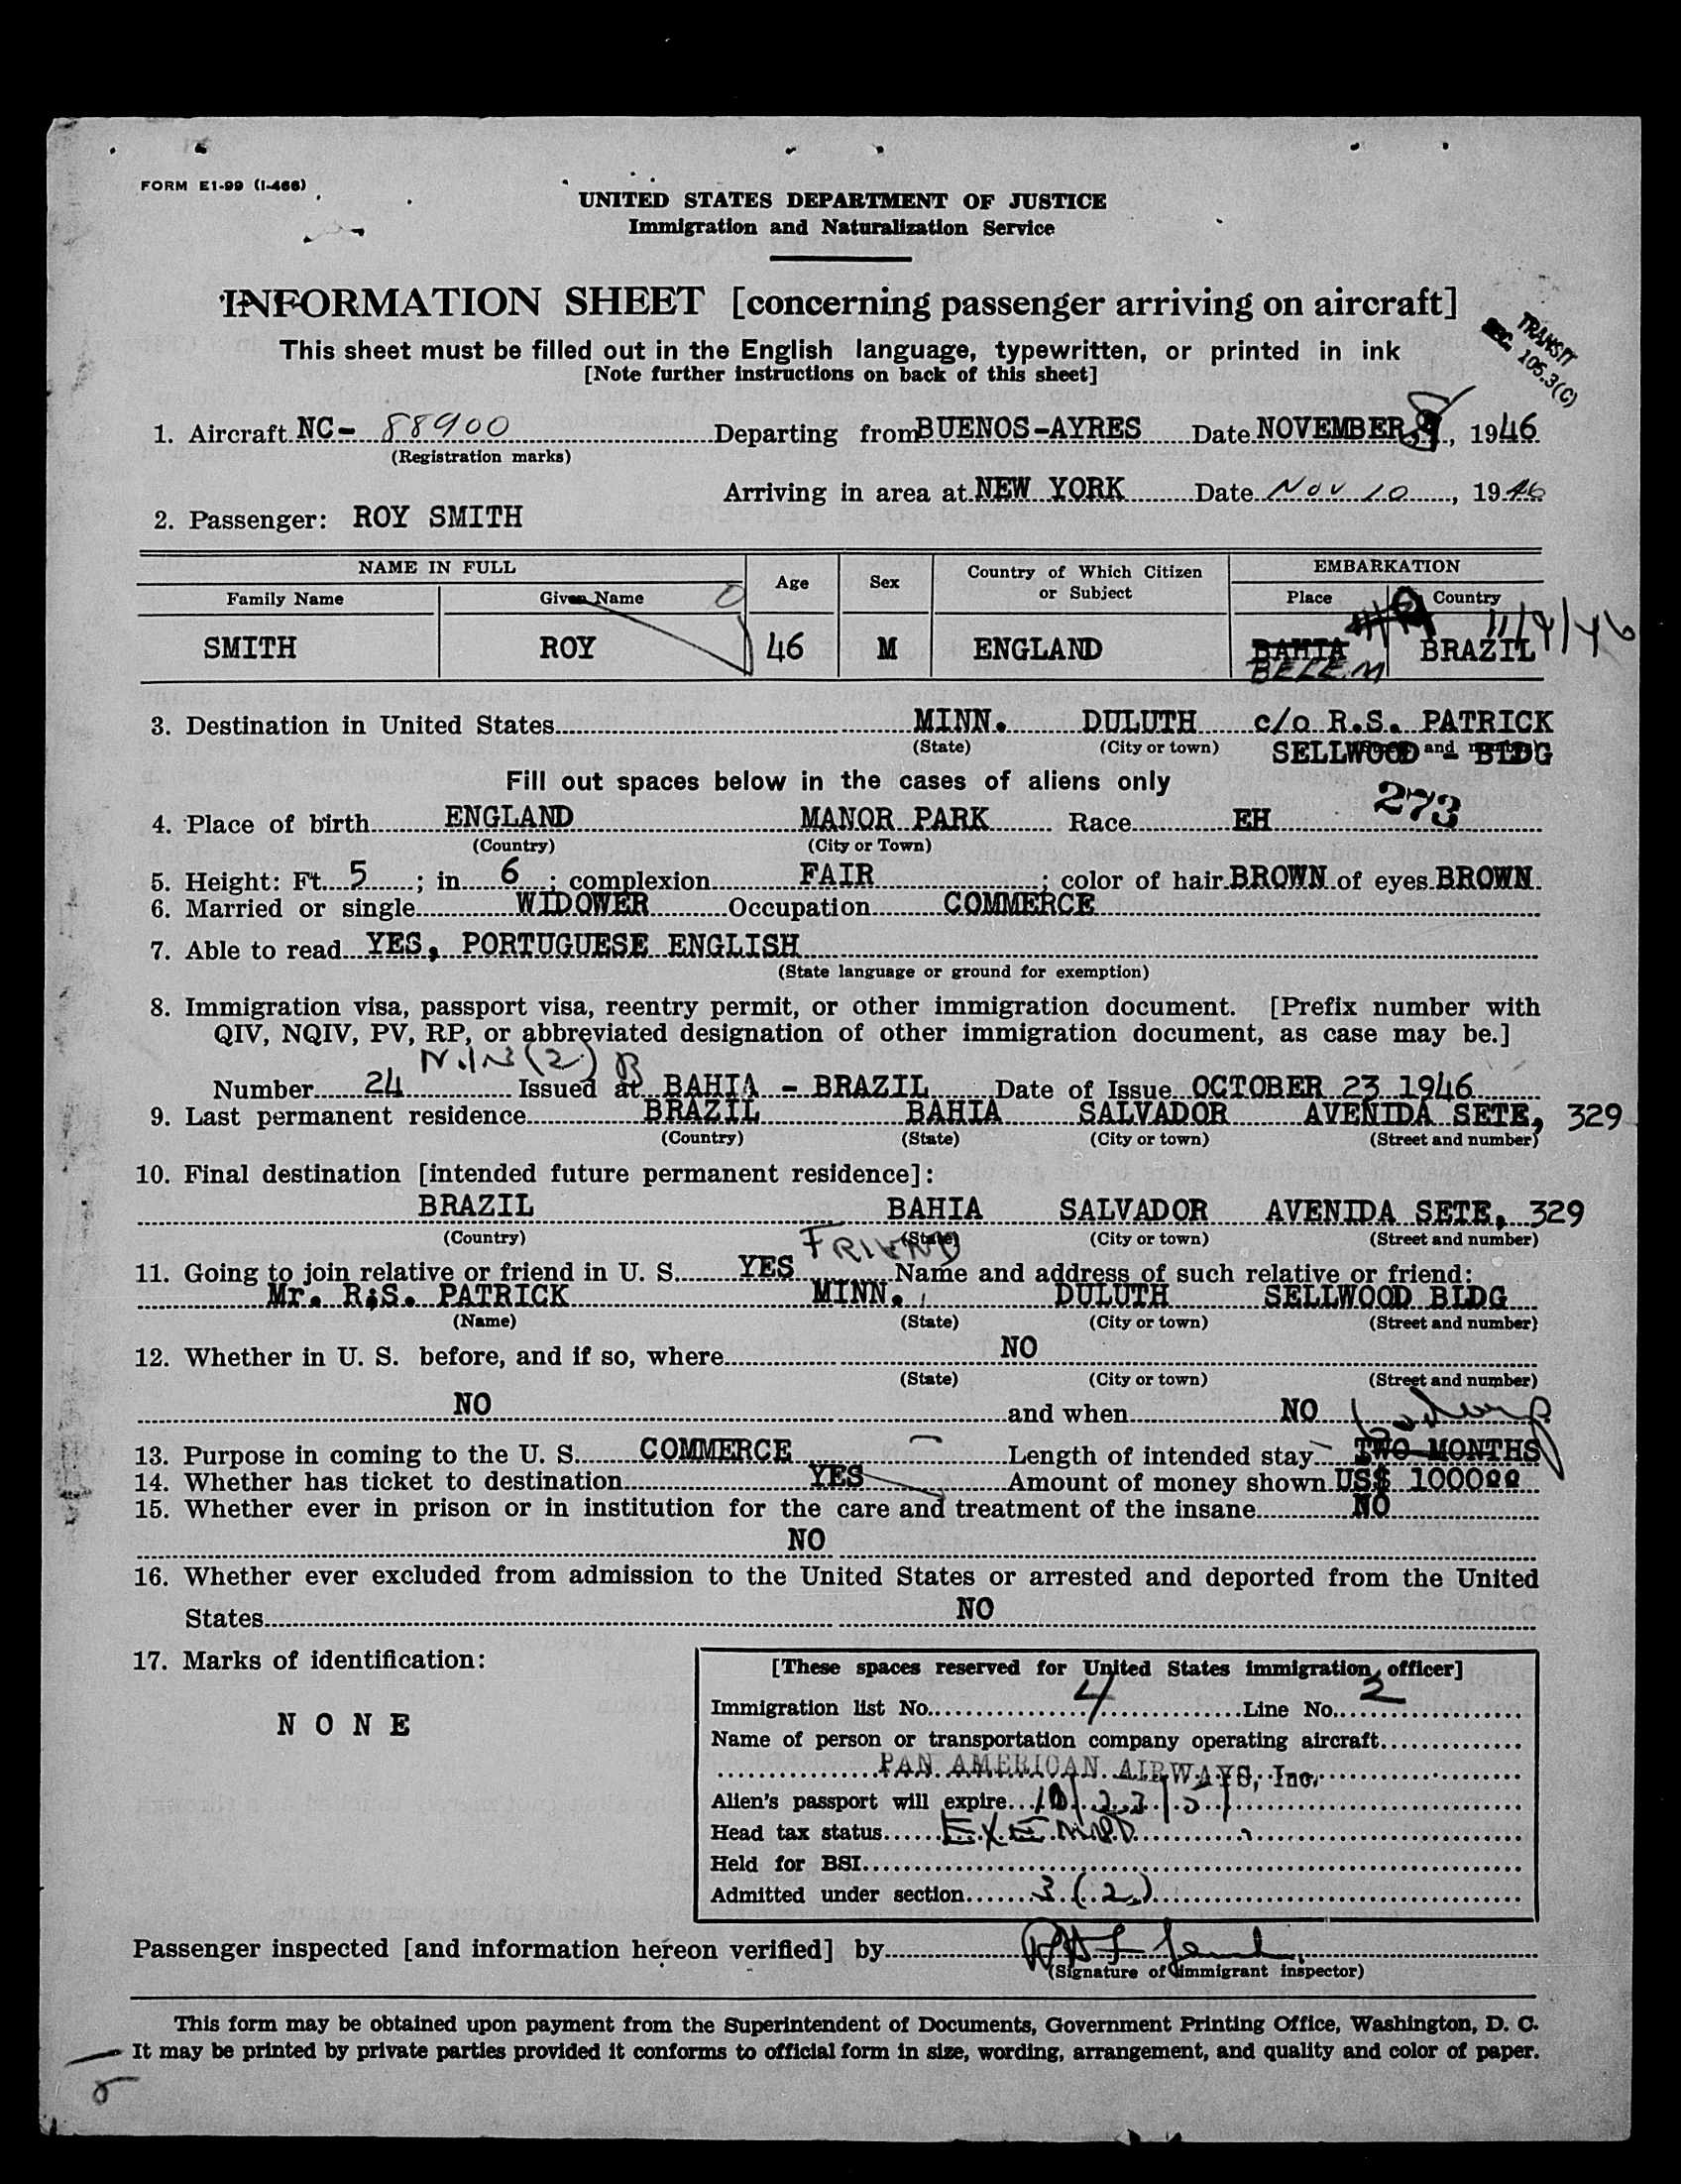 FORM E1-99 (I-466)
UNITED STATES DEPARTMENT OF JUSTICE
Immigration and Naturalization Service
INFORMATION SHEET [concerning passenger arriving on aircraft]
TRANSIT
SEC. 105.3(C)
This sheet must be filled out in the English language, typewritten, or printed in ink
[Note further instructions on back of this sheet]
1. Aircraft NC- 88900 Departing from BUENOS-AYRES Date NOVEMBER 8, 1946
(Registration marks)
Arriving in area at NEW YORK Date Nov 10, 1946
2. Passenger: ROY SMITH
NAME IN FULL Age Sex Country of Which Citizen or Subject EMBARKATION
Family Name Given Name Place Country
11/9/46
SMITH ROY 46 M ENGLAND BAHIA BRAZIL
BELEM
3. Destination in United States MINN. DULUTH c/o R.S. PATRICK
(State) (City or town) SELLWOOD - BLDG
Fill out spaces below in the cases of aliens only
273
4. Place of birth ENGLAND MANOR PARK Race EH
(Country) (City or Town)
5. Height: Ft. 5; in. 6; complexion FAIR; color of hair BROWN of eyes BROWN
6. Married or single WIDOWER Occupation COMMERCE
7. Able to read YES, PORTUGUESE ENGLISH
(State language or ground for exemption)
8. Immigration visa, passport visa, reentry permit, or other immigration document. [Prefix number with
QIV, NQIV, PV, RP, or abbreviated designation of other immigration document, as case may be.]
Number 24 Issued at BAHIA - BRAZIL Date of Issue OCTOBER 23 1946
9. Last permanent residence BRAZIL BAHIA SALVADOR AVENIDA SETE, 329
(Country) (State) (City or town) (Street and number)
10. Final destination [intended future permanent residece]:
BRAZIL BAHIA SALVADOR AVENIDA SETE, 329
(Country) (State) (City or town) (Street and number)
FRIEND
11. Going to join relative or friend in U. S. YES Name and address of such relative or friend:
Mr. R.S. PATRICK MINN. DULUTH SELLWOOD BLDG
(Name) (State) (City or town) (Street and number)
12. Whether in U. S. before, and if so, where NO
(State) (City or town) (Street and number)
NO and when NO
13. Purpose in coming to the U. S. COMMERCE Length of intended stay TWO MONTHS
14. Whether has ticket to destination YES Amount of money shown US$ 100000
15. Whether ever in prison or in institution for the care and treatment of the insane NO
NO
16. Whether ever excluded from admission to the United States or arrested and deported from the United
States NO
17. Marks of identification:
NONE
[These spaces reserved for United States immigration officer]
Immigration list No. 4 Line No. 2
Name of person or transportation company operating aircraft
PAN AMERICAN AIRWAYS, Inc.
Alien's passport will expire 10/23/51
Head tax status
Held for BSI
Admitted under section 3(2)
Passenger inspected [and information hereon verified] by
(Signature of immigrant inspector)
This form may be obtained upon payment from the Superintendent of Documents, Government Printing Office, Washington, D. C.
It may be printed by private parties provided it conforms to official form in size, wording, arrangement, and quality and color of paper.